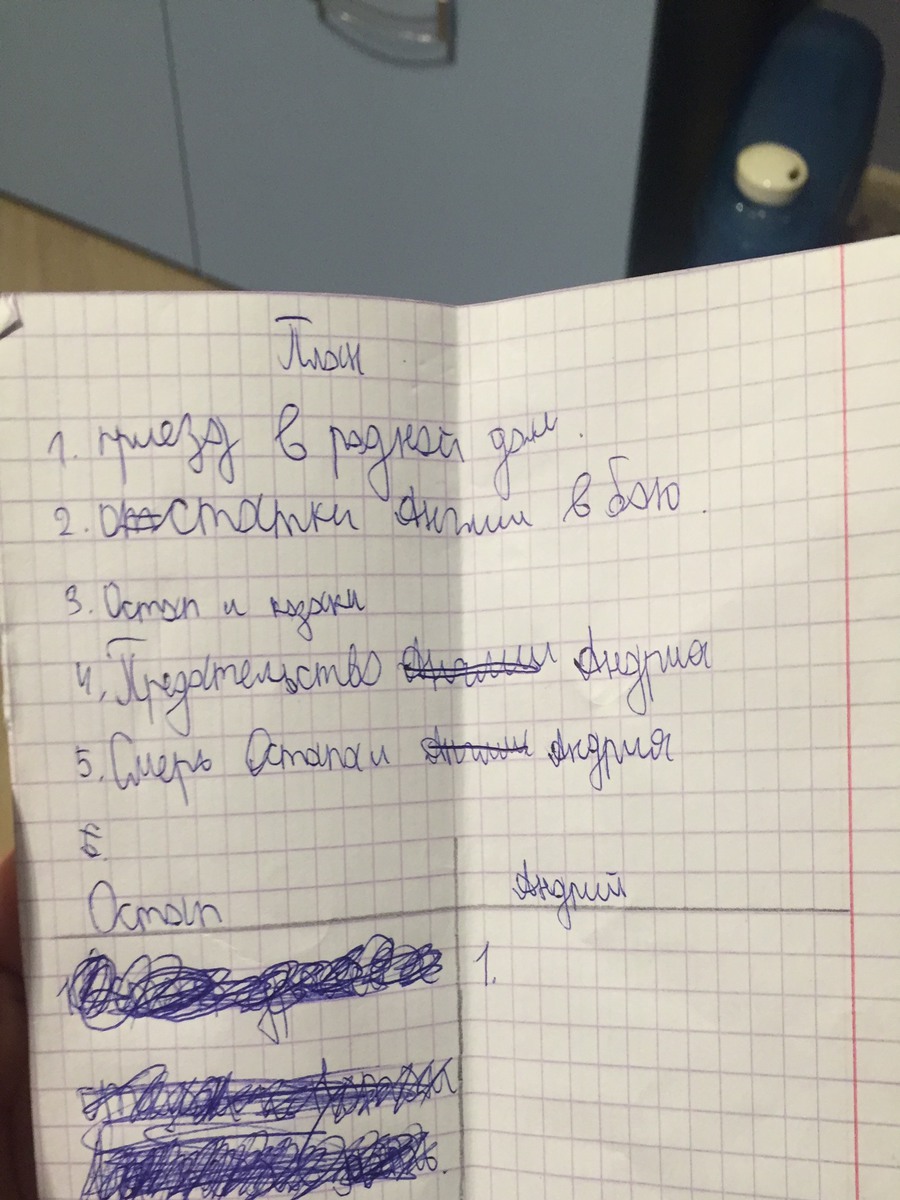 План
1. приезд в родной дом.
2. остатки Англии в бою.
3. Остап и козаки
4. Предательство Андрия
5. Смерь Остапа и Андрия
6
Остап
Андрий
1.